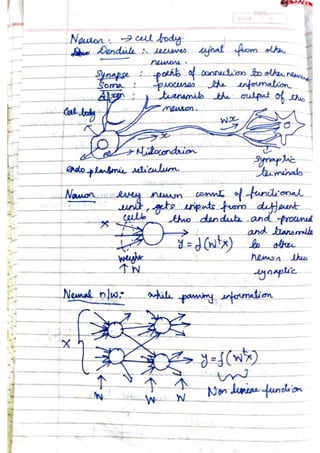 Neuron. → cell body
Dendute : recieves signal from other
neurons.
Synapse : path of connection to other neurons
Soma : processes the information
Axon : transmits the output of this
neuron.
Cell body
x
wx
→ Mitocondrion
endo plasmic reticulum
Synaptic
terminals
Neuron every neuron consists of functional
unit, gets inputs from different
cells thro dendute and processed
and transmits
X
y = f(WᵗX) to other
Weight
neuron thro
↑ W
synaptic
Neural n/w: while passing information
X
y = f(WᵗX)
Non linear function
W W W